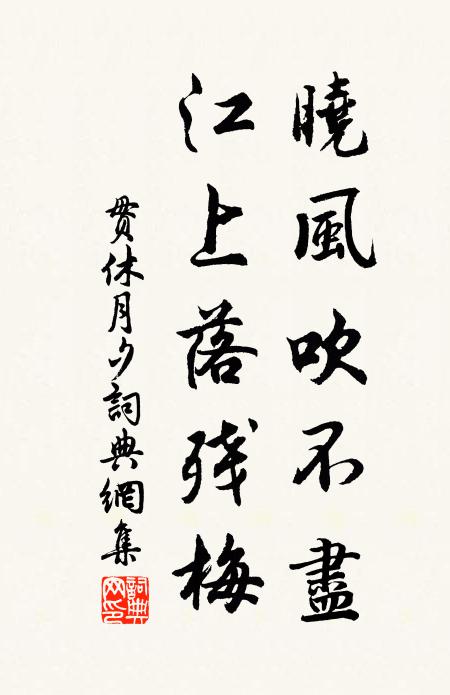 曉風吹不盡
江上落残梅
貫休月夕詞典網集
詞典網印